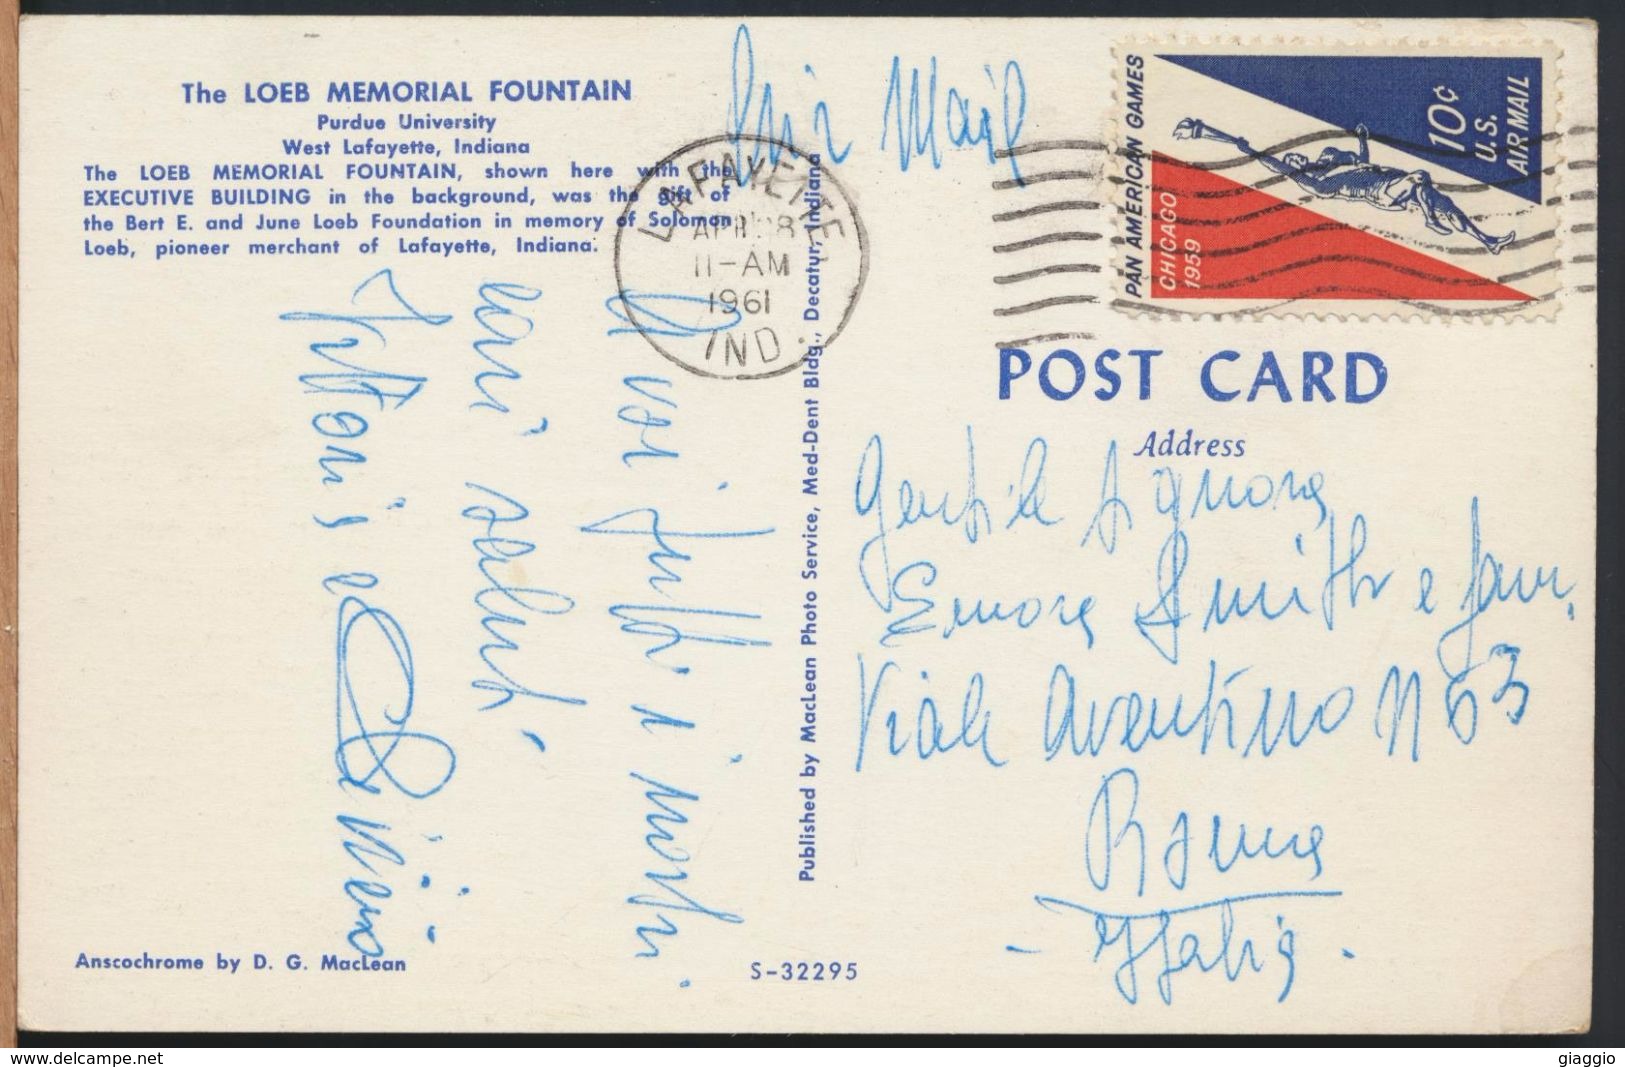 The LOEB MEMORIAL FOUNTAIN
Purdue University
West Lafayette, Indiana
The LOEB MEMORIAL FOUNTAIN, shown here with the
EXECUTIVE BUILDING in the background, was the gift of
the Bert E. and June Loeb Foundation in memory of Solomon
Loeb, pioneer merchant of Lafayette, Indiana.
A voi tutti i nostri
cari saluti
Vittorio e
Anscochrome by D. G. MacLean
S-32295
Published by MacLean Photo Service, Med-Dent Bldg., Decatur, Indiana
Air Mail
LAFAYETTE
APR 28
11-AM
1961
IND.
PAN AMERICAN GAMES
CHICAGO
1959
10¢
U.S.
AIR MAIL
POST CARD
Address
Gentile Signora
Smith e fam.
Viale Aventino N 63
Roma
- Italia -
www.delcampe.net
giaggio